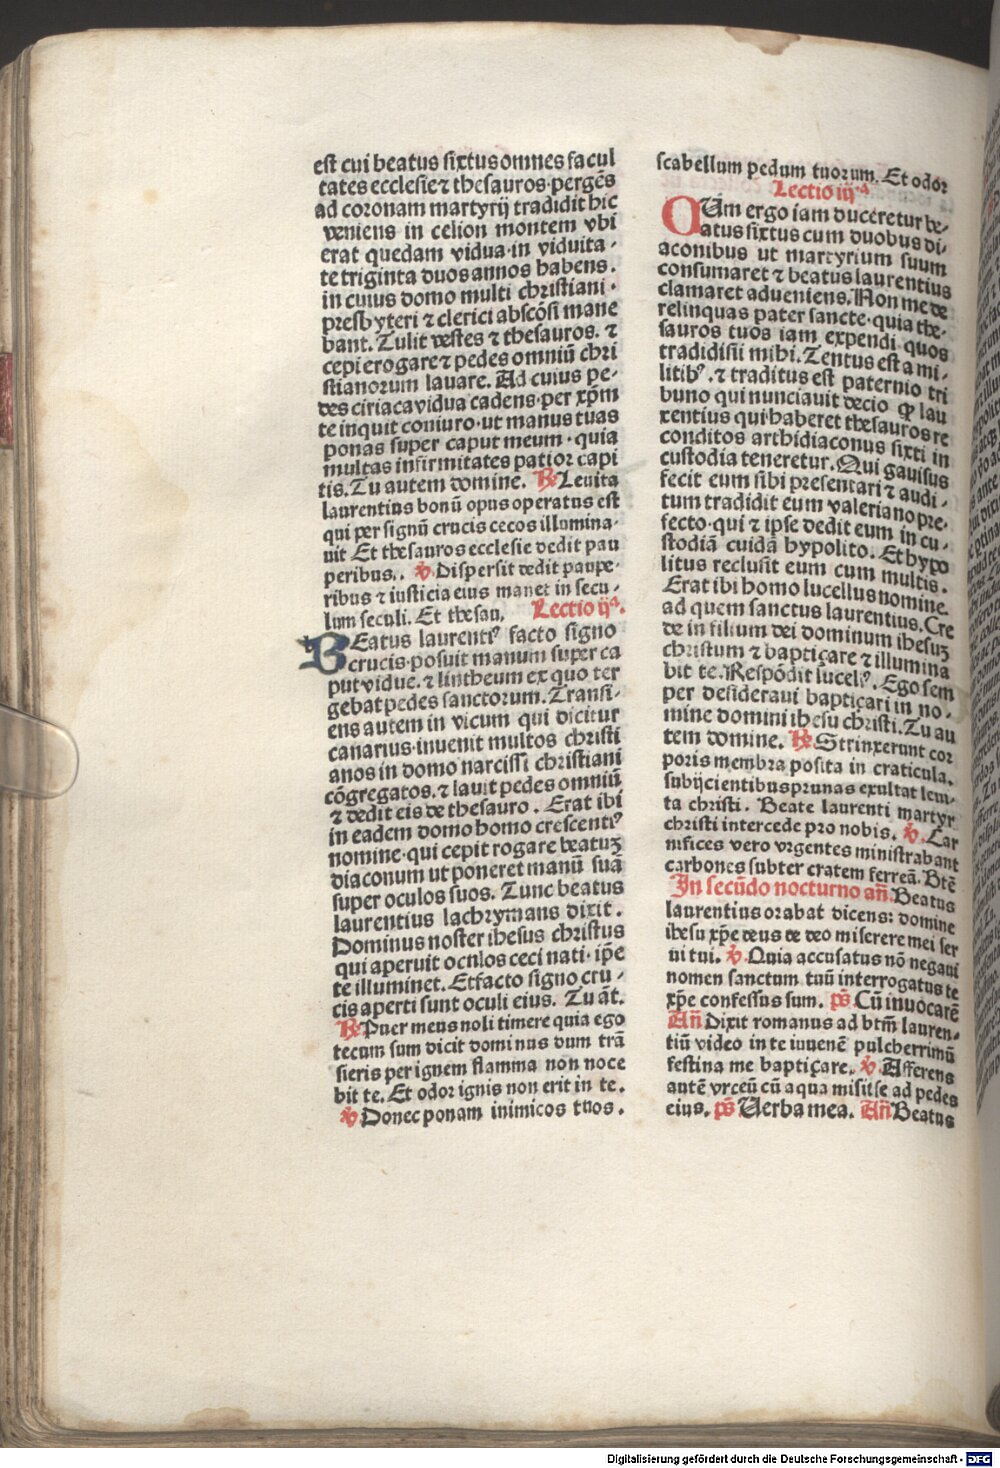 est cui beatus sixtus omnes facul
tates ecclesie ⁊ thesauros·pergēs
ad coronam martyrij tradidit hic
veniens in celion montem vbi
erat quedam vidua·in viduita·
te triginta duos annos habens.
in cuius domo multi christiani·
presbyteri ⁊ clerici abscōsi mane
bant. Tulit vestes ⁊ thesauros. ⁊
cepi erogare ⁊ pedes omniū chri
stianorum lauare. Ad cuius pe-
des ciriaca vidua cadens·per xp̄m
te inquit coniuro·ut manus tuas
ponas super caput meum·quia
multas infirmitates patior capi
tis. Tu autem domine. ℟ Leuita
laurentius bonū opus operatus est
qui per signū crucis cecos illumina·
uit Et thesauros ecclesie dedit pau
peribus.. ℣ Dispersit dedit paupe·
ribus ⁊ iusticia eius manet in secu·
lum seculi. Et thesau. Lectio ijª.
BEatus laurentiꝰ facto signo
crucis·posuit manum super ca
put vidue. ⁊ lintheum ex quo ter
gebat pedes sanctorum. Transi·
ens autem in vicum qui dicitur
canarius·inuenit multos christi
anos in domo narcissi christiani
cōgregatos. ⁊ lauit pedes omniū
⁊ dedit eis de thesauro. Erat ibi
in eadem domo homo crescentiꝰ
nomine·qui cepit rogare beatuꝫ
diaconum ut poneret manū suā
super oculos suos. Tunc beatus
laurentius lachrymans dixit.
Dominus noster ihesus christus
qui aperuit ocnlos ceci nati·ip̄e
te illuminet. Et facto signo cru·
cis aperti sunt oculi eius. Tu āt.
℟ Puer meus noli timere quia ego
tecum sum dicit dominus dum trā
sieris per ignem flamma non noce
bit te. Et odor ignis non erit in te.
℣ Donec ponam inimicos tuos.
scabellum pedum tuorum. Et odor
Lectio iijª
QUm ergo iam duceretur be-
atus sixtus cum duobus di-
aconibus ut martyrium suum
consumaret ⁊ beatus laurentius
clamaret adueniens. Non me de
relinquas pater sancte·quia the-
sauros tuos iam expendi quos
tradidisti mihi. Tentus est a mi·
litibꝰ. ⁊ traditus est paternio tri
buno qui nunciauit decio ꝙ lau
rentius qui·haberet thesauros re
conditos arthidiaconus sixti in
custodia teneretur. Qui gauisus
fecit eum sibi presentari ⁊ audi·
tum tradidit eum valeriano pre-
fecto·qui ⁊ ipse dedit eum in cu·
stodiā cuidā hypolito. Et hypo
litus reclusit eum cum multis.
Erat ibi homo lucellus nomine.
ad quem sanctus laurentius. Cre
de in filium dei dominum ihesuꝫ
christum ⁊ baptiçare ⁊ illumina
bit te. Respōdit lucelꝰ. Ego sem
per desideraui baptiçari in no·
mine domini ihesu christi. Tu au
tem domine. ℟ Strinxerunt cor
poris membra posita in craticula.
subijcientibus prunas exultat leui·
ta christi. Beate laurenti martyr
christi intercede pro nobis. ℣. Car
nifices vero vrgentes ministrabant
carbones subter cratem ferreā. Btē
In secūdo nocturno añ. Beatus
laurentius orabat dicens: domine
ihesu xp̄e deus de deo miserere mei ser
ui tui. ℣. Quia accusatus nō negaui
nomen sanctum tuū interrogatus te
xp̄e confessus sum. p̄s Cū inuocarē
Añ Dixit romanus ad btm̄ lauren-
tiū video in te iuuenē pulcherrimū
festina me baptiçare. ℣. Afferens
autē vrceū cū aqua misit se ad pedes
eius. p̄s Uerba mea. Añ Beatus
Digitalisierung gefördert durch die Deutsche Forschungsgemeinschaft - DFG